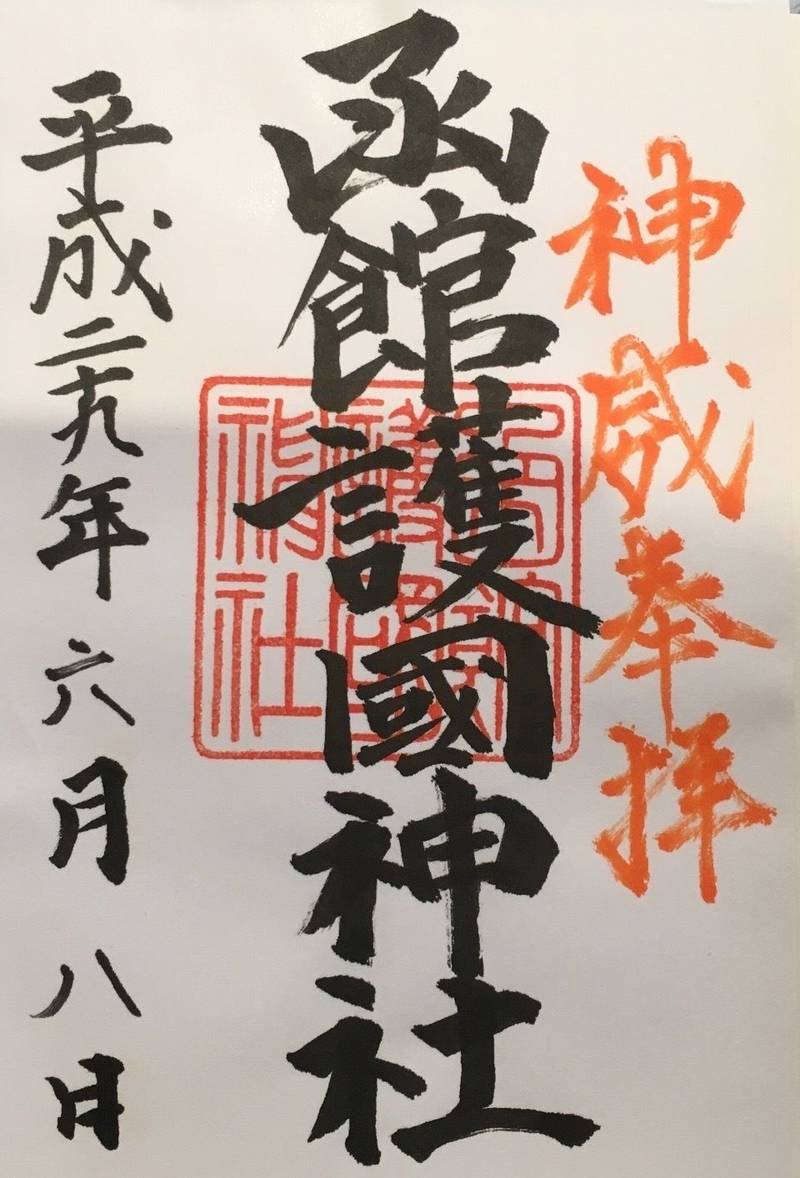 神威奉拝
函館護國神社
函館
護國
神社
平成二十九年六月八日